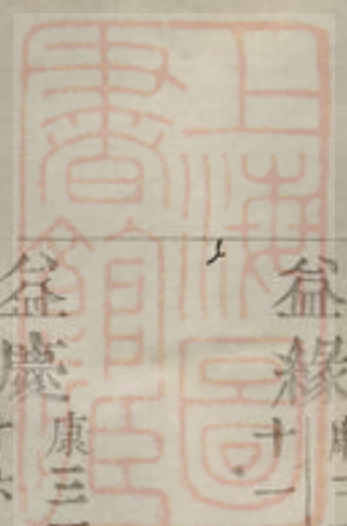 上海圖
書館藏
益緣
十一
益慶
康三